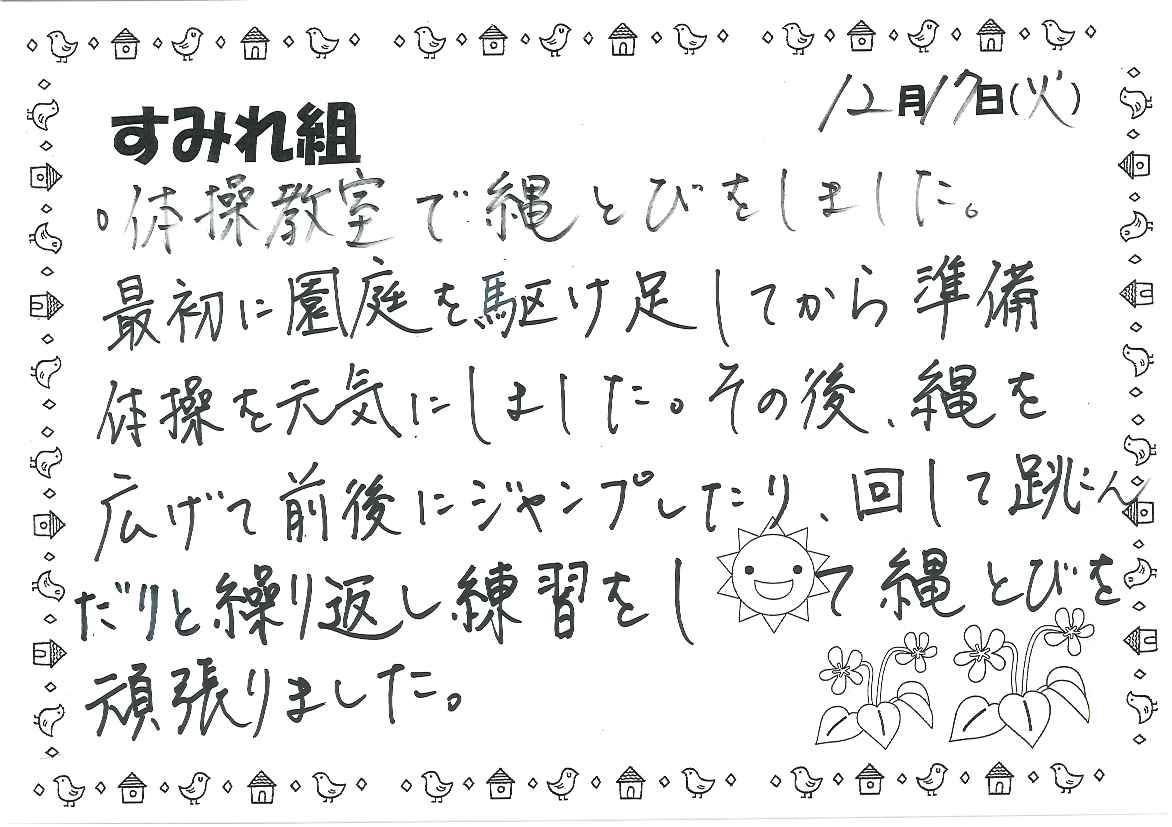 12月17日(火)
すみれ組
○体操教室で縄とびをしました。
最初に園庭を駆け足してから準備
体操を元気にしました。その後、縄を
広げて前後にジャンプしたり、回して跳ん
だりと繰り返し練習をして縄とびを
頑張りました。